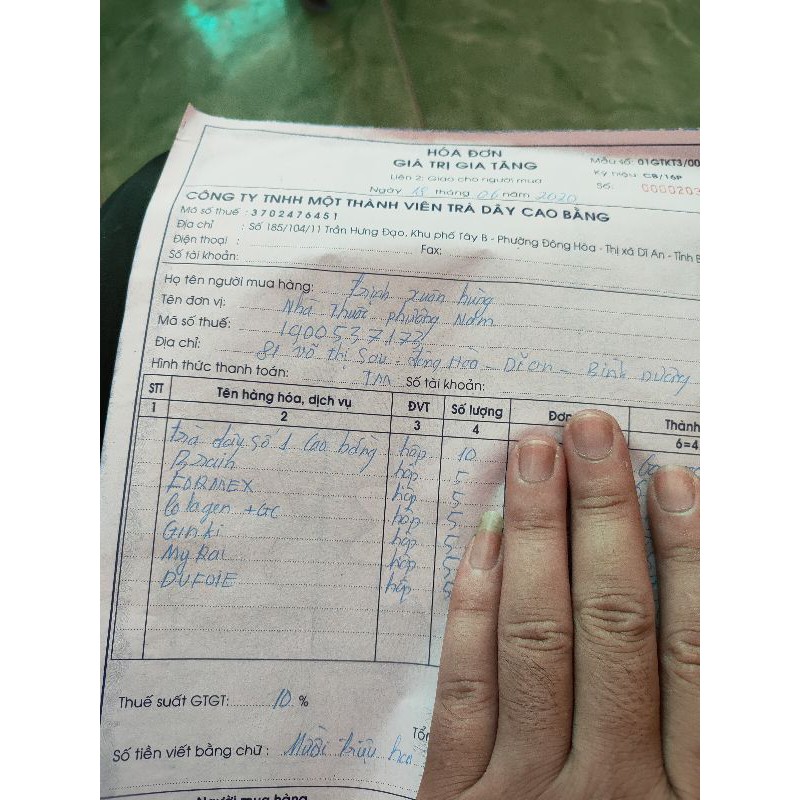 HÓA ĐƠN
GIÁ TRỊ GIA TĂNG
Liên 2: Giao cho người mua
Ngày 18 tháng 06 năm 2020
Mẫu số: 01GTKT3/00
Ký hiệu: CB/16P
Số: 0000203
CÔNG TY TNHH MỘT THÀNH VIÊN TRÀ DÂY CAO BẰNG
Mã số thuế : 3702476451
Địa chỉ : Số 185/104/11 Trần Hưng Đạo, Khu phố Tây B - Phường Đông Hòa - Thị xã Dĩ An - Tỉnh B
Điện thoại : Fax:
Số tài khoản:
Họ tên người mua hàng: Trịnh xuân hùng
Tên đơn vị: Nhà Thuốc phường Nam
Mã số thuế: 1900537173
Địa chỉ: 81 võ thị Sáu - đông Hòa - Dĩ an - Bình Dương
Hình thức thanh toán: TM Số tài khoản:
STT Tên hàng hóa, dịch vụ ĐVT Số lượng Đơn Thành
1 2 3 4 6=4
Trà dây số 1 Cao bằng hộp 10
Brain hộp 5
FORMEX hộp 5
Colagen +GC hộp 5
Ginki hộp 5
MyRai hộp 5
DUFOIE hộp 5
Thuế suất GTGT: 10 %
Số tiền viết bằng chữ : Mười triệu hai
Người mua hàng